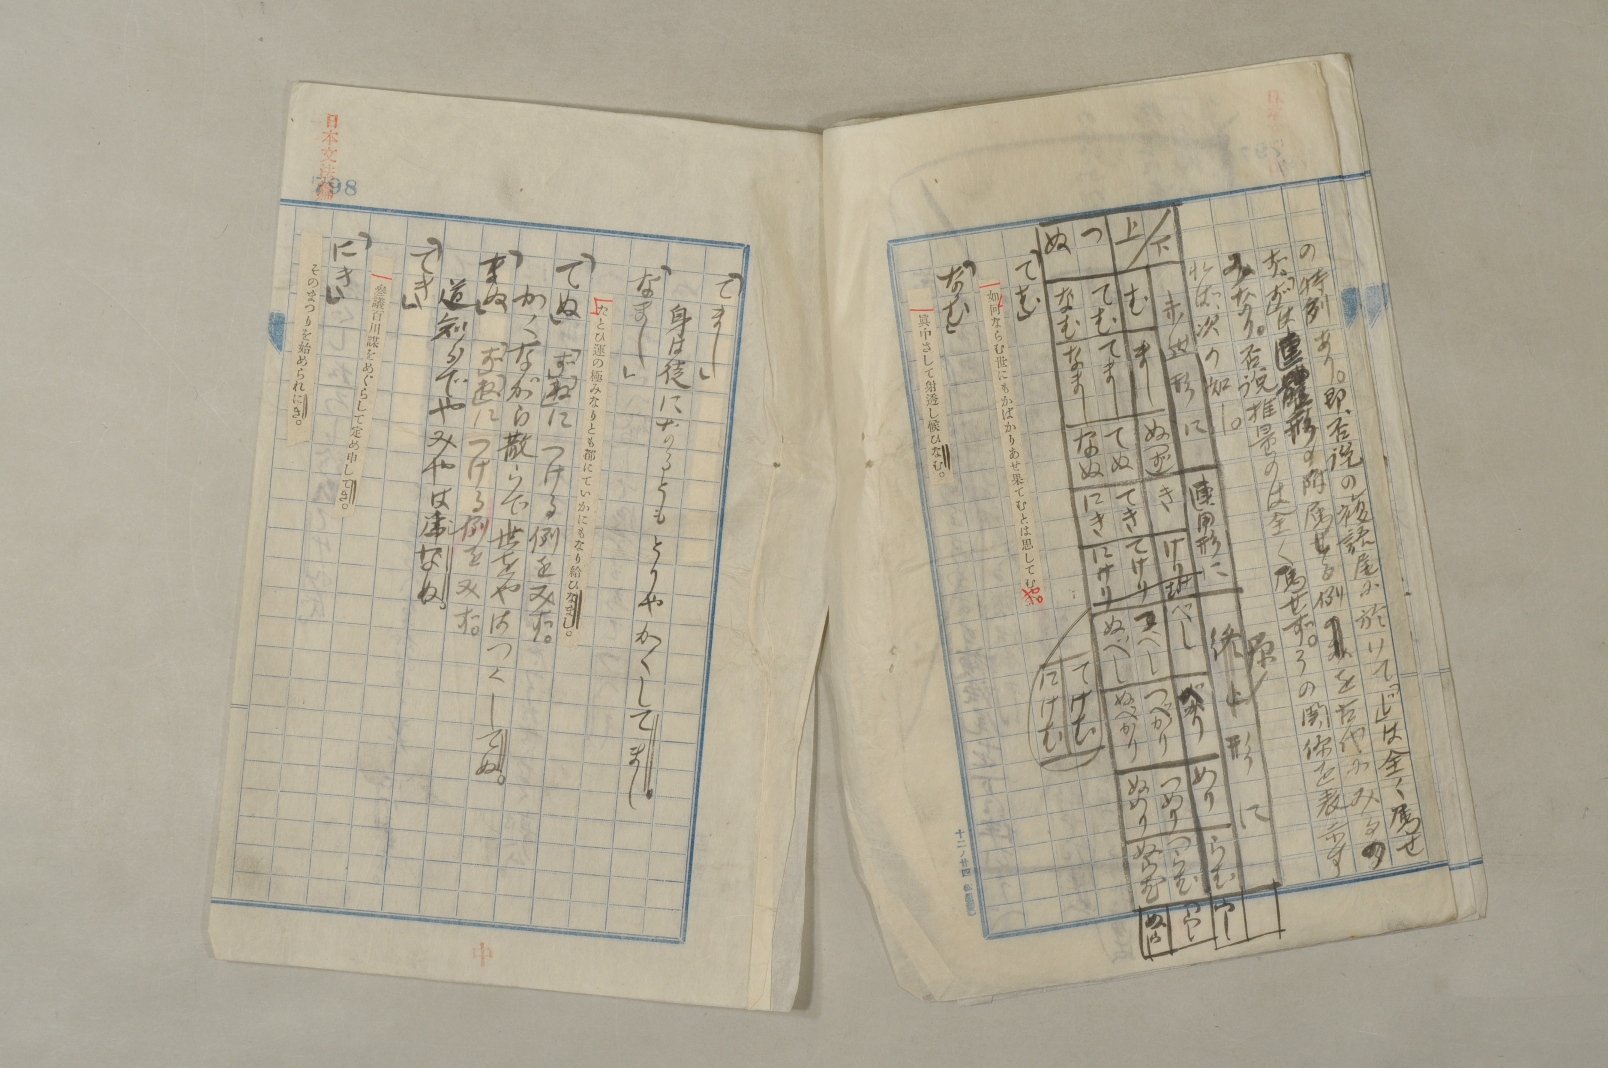 の特例あり。即否説の複語尾に於けて「じ」は全く属せ
ず、「ず」は連體形の附属せる例のみを古代にみるの
みなり。否説推量のは全く属せず。その関係を表示す
れば次の如し。
下 未然形に 連用形に 終止形に
上 む まし ぬ(ず) き けり べし べかり めり らむ らし
つ てむ てまし てぬ てき てけり つべし つべかり つめり つらむ つらし
ぬ なむ なまし なぬ にき にけり ぬべし ぬべかり ぬめり ぬらむ ぬらし
てけむ
にけむ
「てむ」
如何ならむ世にもかばかりあせ果てむとは思してむや。
「なむ」
眞中さして射透し候ひなむ。
十二ノ廿四
日本文法論
798
「てまし」
身は徒になるともとりやかくしてまし。
「なまし」
たとひ運の極みなりとも都にていかにもなり給ひなまし。
「てぬ」「ず」「ね」につける例をみず。
かくながら散らで世をやはつくしてぬ。
「なぬ」「ず」「ね」につける例をみず。
道知らでやみやは為なぬ。
「てき」
參議百川謀をめぐらして定め申してき。
「にき」
そのまつりを始められにき。
中